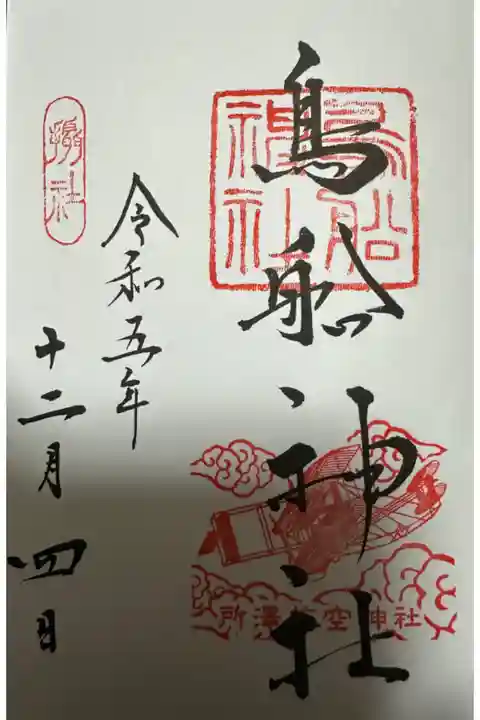 鳥船神社
鳥船
神社
所澤航空神社
令和五年
十二月四日
摂社